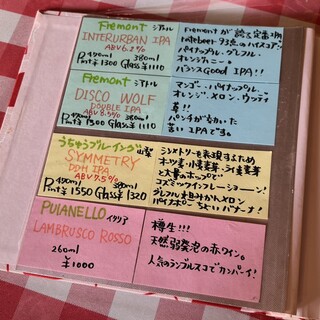 Fremont シアトル
INTERURBAN IPA
ABV6.2%
470ml 380ml
Pint¥1300 Glass¥1110
Fremontが誇る定番IPA
ratebeer 93点のハイスコア!!
パイナップル、グレフル、
オレンジピール。
バランスGood IPA!!
Fremont シアトル
DISCO WOLF
DOUBLE IPA
ABV8.5%
470ml 380ml
Pint¥1300 Glass¥1110
マンゴー、パイナップル、
オレンジ、メロン、ウッディ
!!
パンチが
IPAです。
うちゅうブルーイング 山梨
SYMMETRY
DDH IPA
ABV7.5%
470ml 380ml
Pint¥1550 Glass¥1320
シンメトリーを表現するため
オーツ麦、小麦麦芽、ライ麦麦芽
と大量のホップで
コズミックインフレーション!
グレフル
パイン ちょいバナナ!
PUIANELLO イタリア
LAMBRUSCO ROSSO
260ml
¥1000
樽生!!!
天然弱発泡の赤ワイン。
人気のランブルスコでカンパーイ!